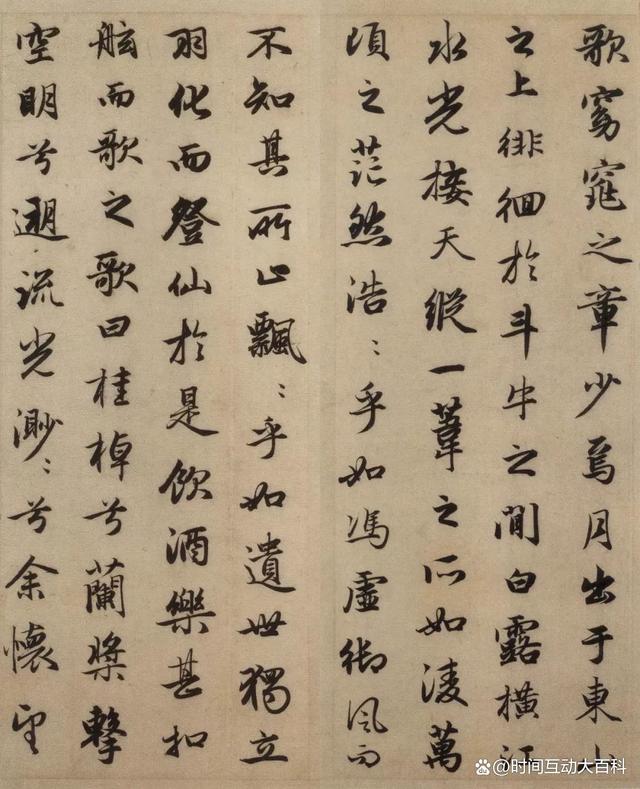 歌窈窕之章少焉月出于東山
之上徘徊於斗牛之間白露橫江
水光接天縱一葦之所如凌萬
頃之茫然浩〻乎如馮虛御風而
不知其所止飄〻乎如遺世獨立
羽化而登仙於是飲酒樂甚扣
舷而歌之歌曰桂棹兮蘭槳擊
空明兮遡流光渺〻兮余懷望
@时间互动大百科